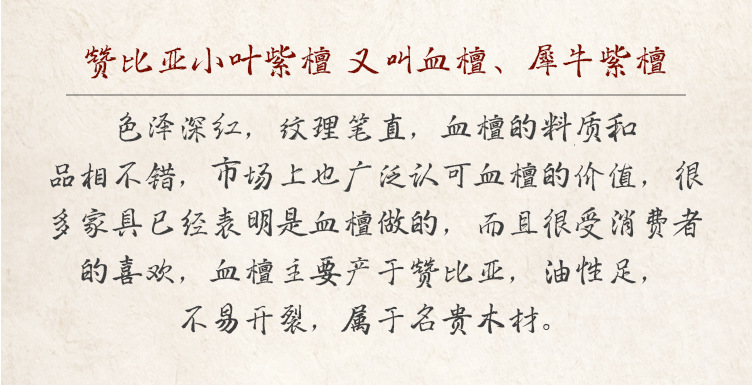 赞比亚小叶紫檀 又叫血檀、犀牛紫檀
色泽深红，纹理笔直，血檀的料质和
品相不错，市场上也广泛认可血檀的价值，很
多家具已经表明是血檀做的，而且很受消费者
的喜欢，血檀主要产于赞比亚，油性足，
不易开裂，属于名贵木材。